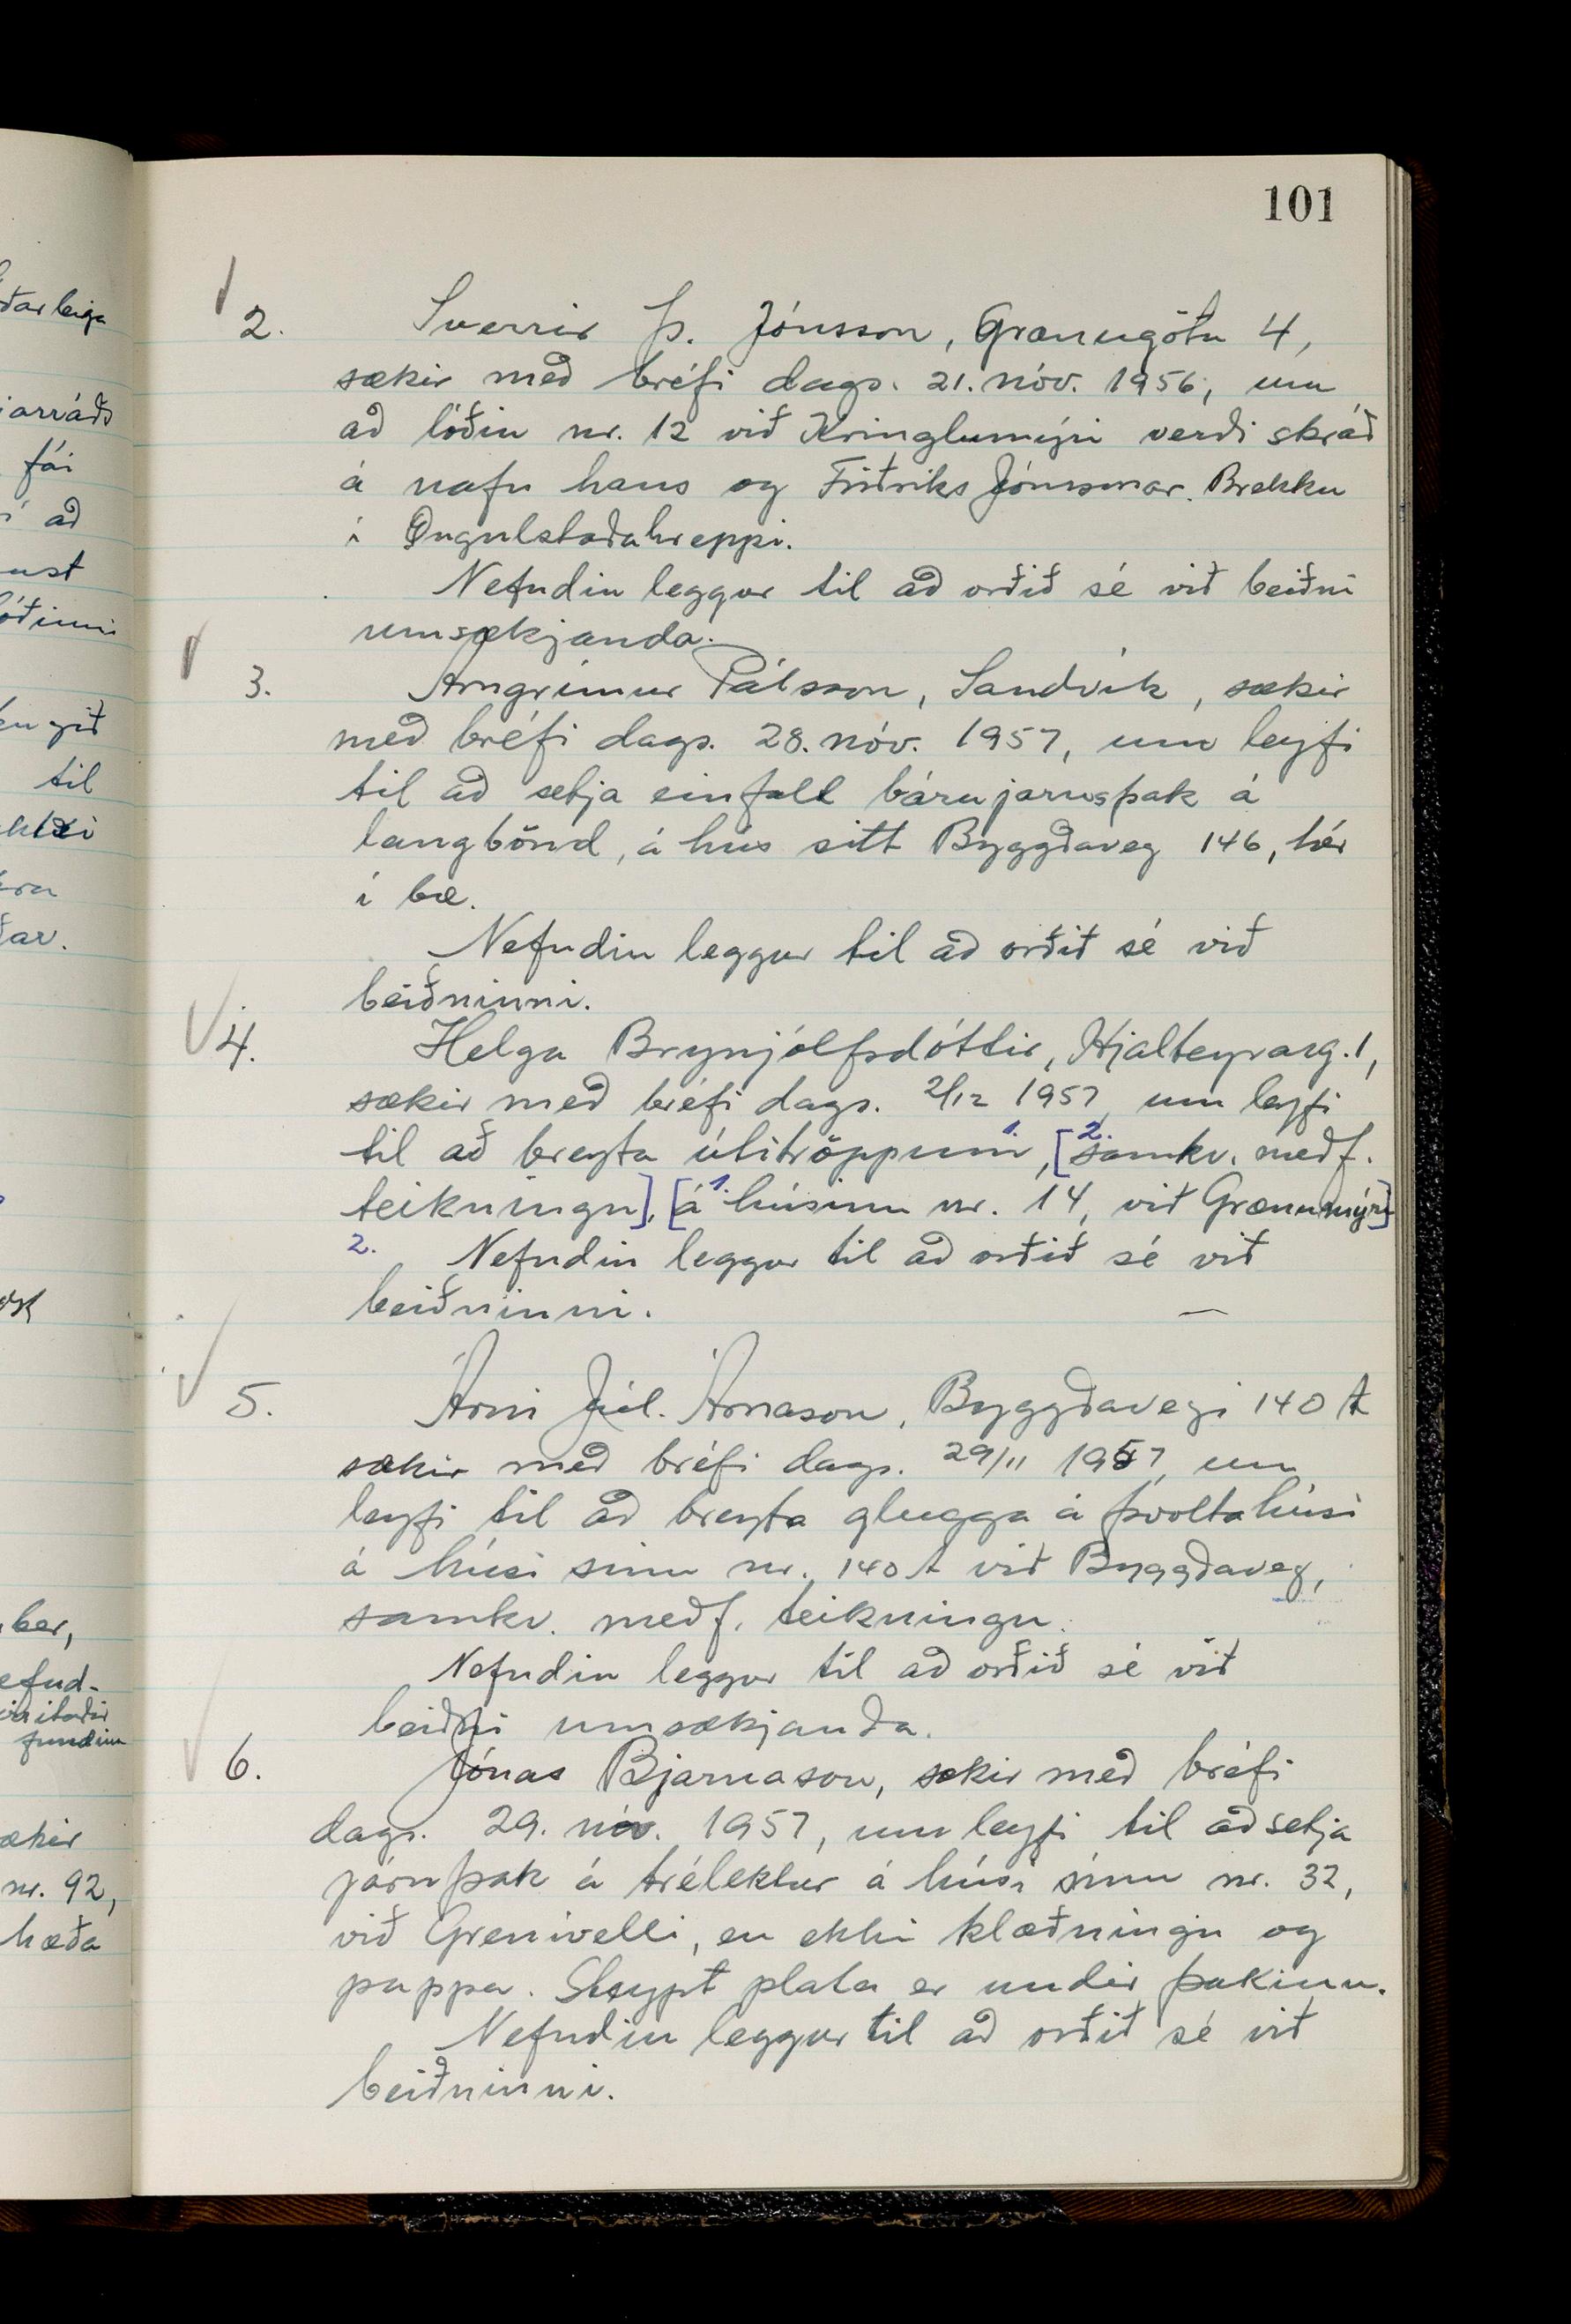 101
2. Sverrir Þ. Jónsson, Grænugötu 4,
sækir með bréfi dags. 21. nóv. 1956, um
að lóðin nr. 12 við Kringlumýri verði skráð
á nafn hans og Friðriks Jónssonar. Brekku
í Öngulstaðahreppi.
Nefndin leggur til að orðið sé við beiðni
umsækjanda.
3. Arngrímur Pálsson, Sandvík, sækir
með bréfi dags. 28. nóv. 1957, um leyfi
til að setja einfalt bárujárnsþak á
langbönd, á hús sitt Byggðaveg 146, hér
í bæ.
Nefndin leggur til að orðið sé við
beiðninni.
4. Helga Brynjólfsdóttir, Hjalteyrarg. 1,
sækir með bréfi dags. 2/12 1957, um leyfi
til að breyta útitröppum 1., [2. samkv. meðf.
teikningu], [1. á húsinu nr. 14, við Grænumýri]
2. Nefndin leggur til að orðið sé við
beiðninni. —
5. Árni Júl. Árnason, Byggðavegi 140 A
sækir með bréfi dags. 29/11 1957, um
leyfi til að breyta glugga á þvottahúsi
á húsi sínu nr. 140 A við Byggðaveg,
samkv. meðf. teikningu.
Nefndin leggur til að orðið sé við
beiðni umsækjanda.
6. Jónas Bjarnason, sækir með bréfi
dags. 29. nóv. 1957, um leyfi til að setja
járnþak á trélektur á húsi sínu nr. 32,
við Grenivelli, en ekki klæðningu og
pappa. Steypt plata er undir þakinu.
Nefndin leggur til að orðið sé við
beiðninni.